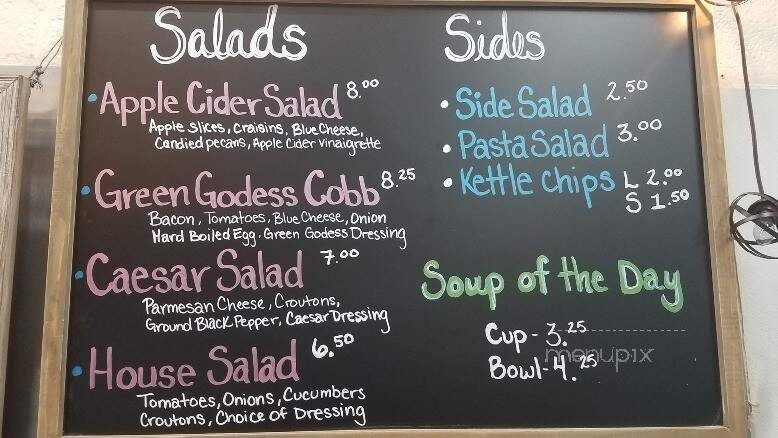 Salads
• Apple Cider Salad 8.00
Apple slices, Craisins, Blue Cheese,
Candied pecans, Apple Cider Vinaigrette
• Green Godess Cobb 8.25
Bacon, Tomatoes, Blue Cheese, Onion
Hard Boiled Egg. Green Godess Dressing
• Caesar Salad 7.00
Parmesan Cheese, Croutons,
Ground Black Pepper, Caesar Dressing
• House Salad 6.50
Tomatoes, Onions, Cucumbers
Croutons, Choice of Dressing
Sides
• Side Salad 2.50
• Pasta Salad 3.00
• Kettle Chips L 2.00
S 1.50
Soup of the Day
Cup - 3.25
Bowl - 4.25
menupix